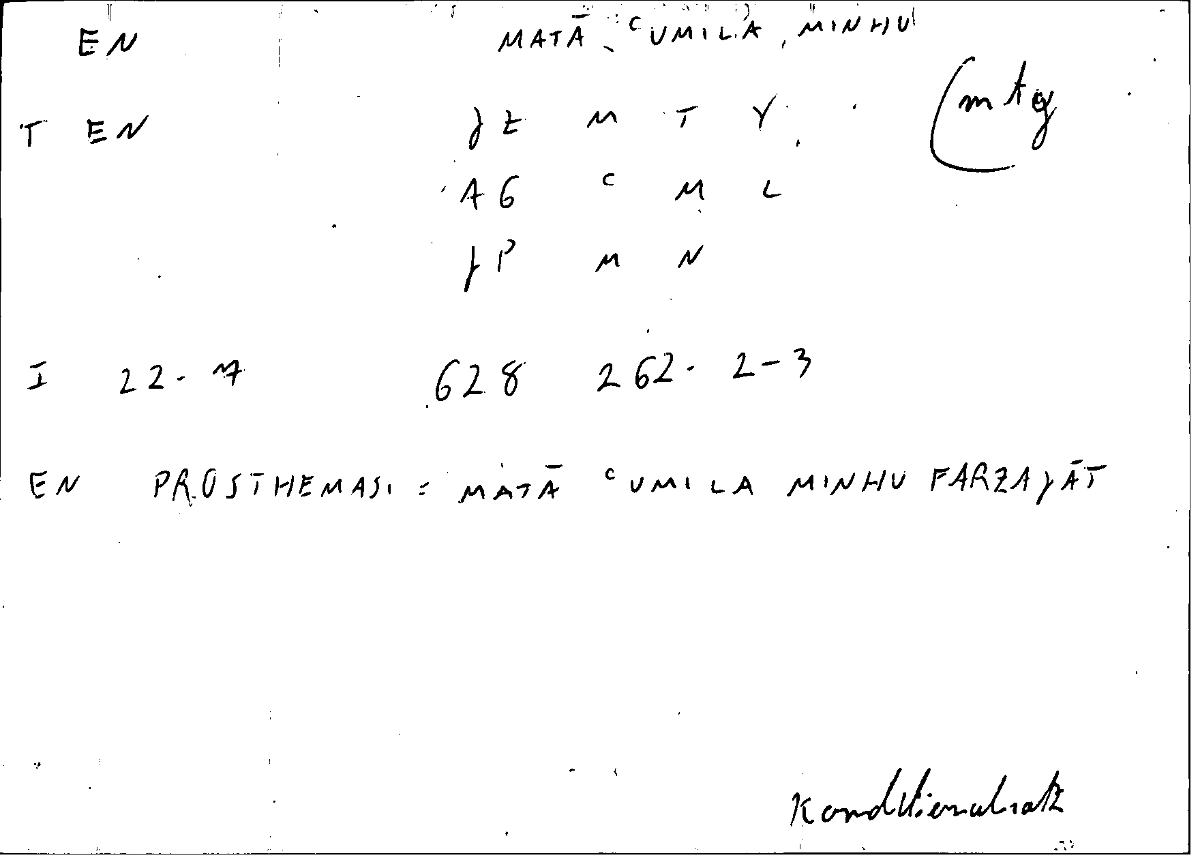 EN MATĀ ʿUMILA MINHU
T EN ȷE M T Y (mty
AG ʿ M L
ȷP M N
I 22.7 628 262.2-3
EN PROSTHEMASI = MATĀ ʿUMILA MINHU FARZAȷĀT
Konditionalsatz